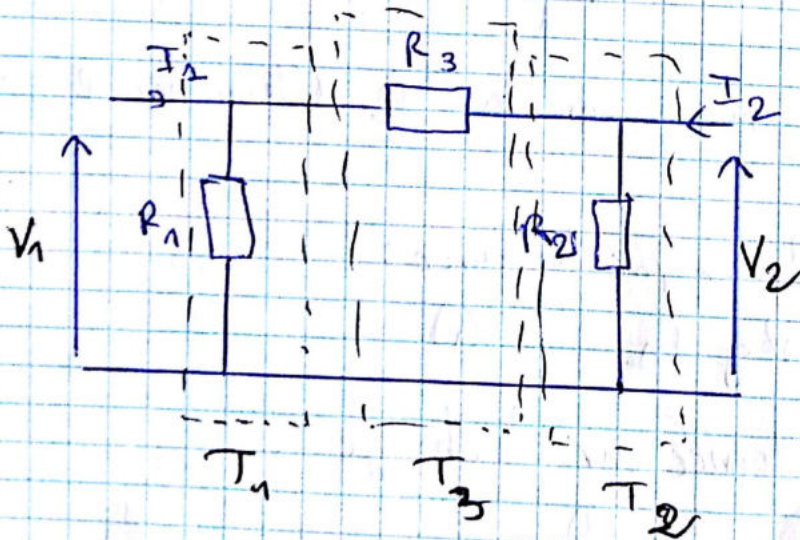 I₁
R₃
I₂
V₁
R₁
R₂
V₂
T₁
T₃
T₂